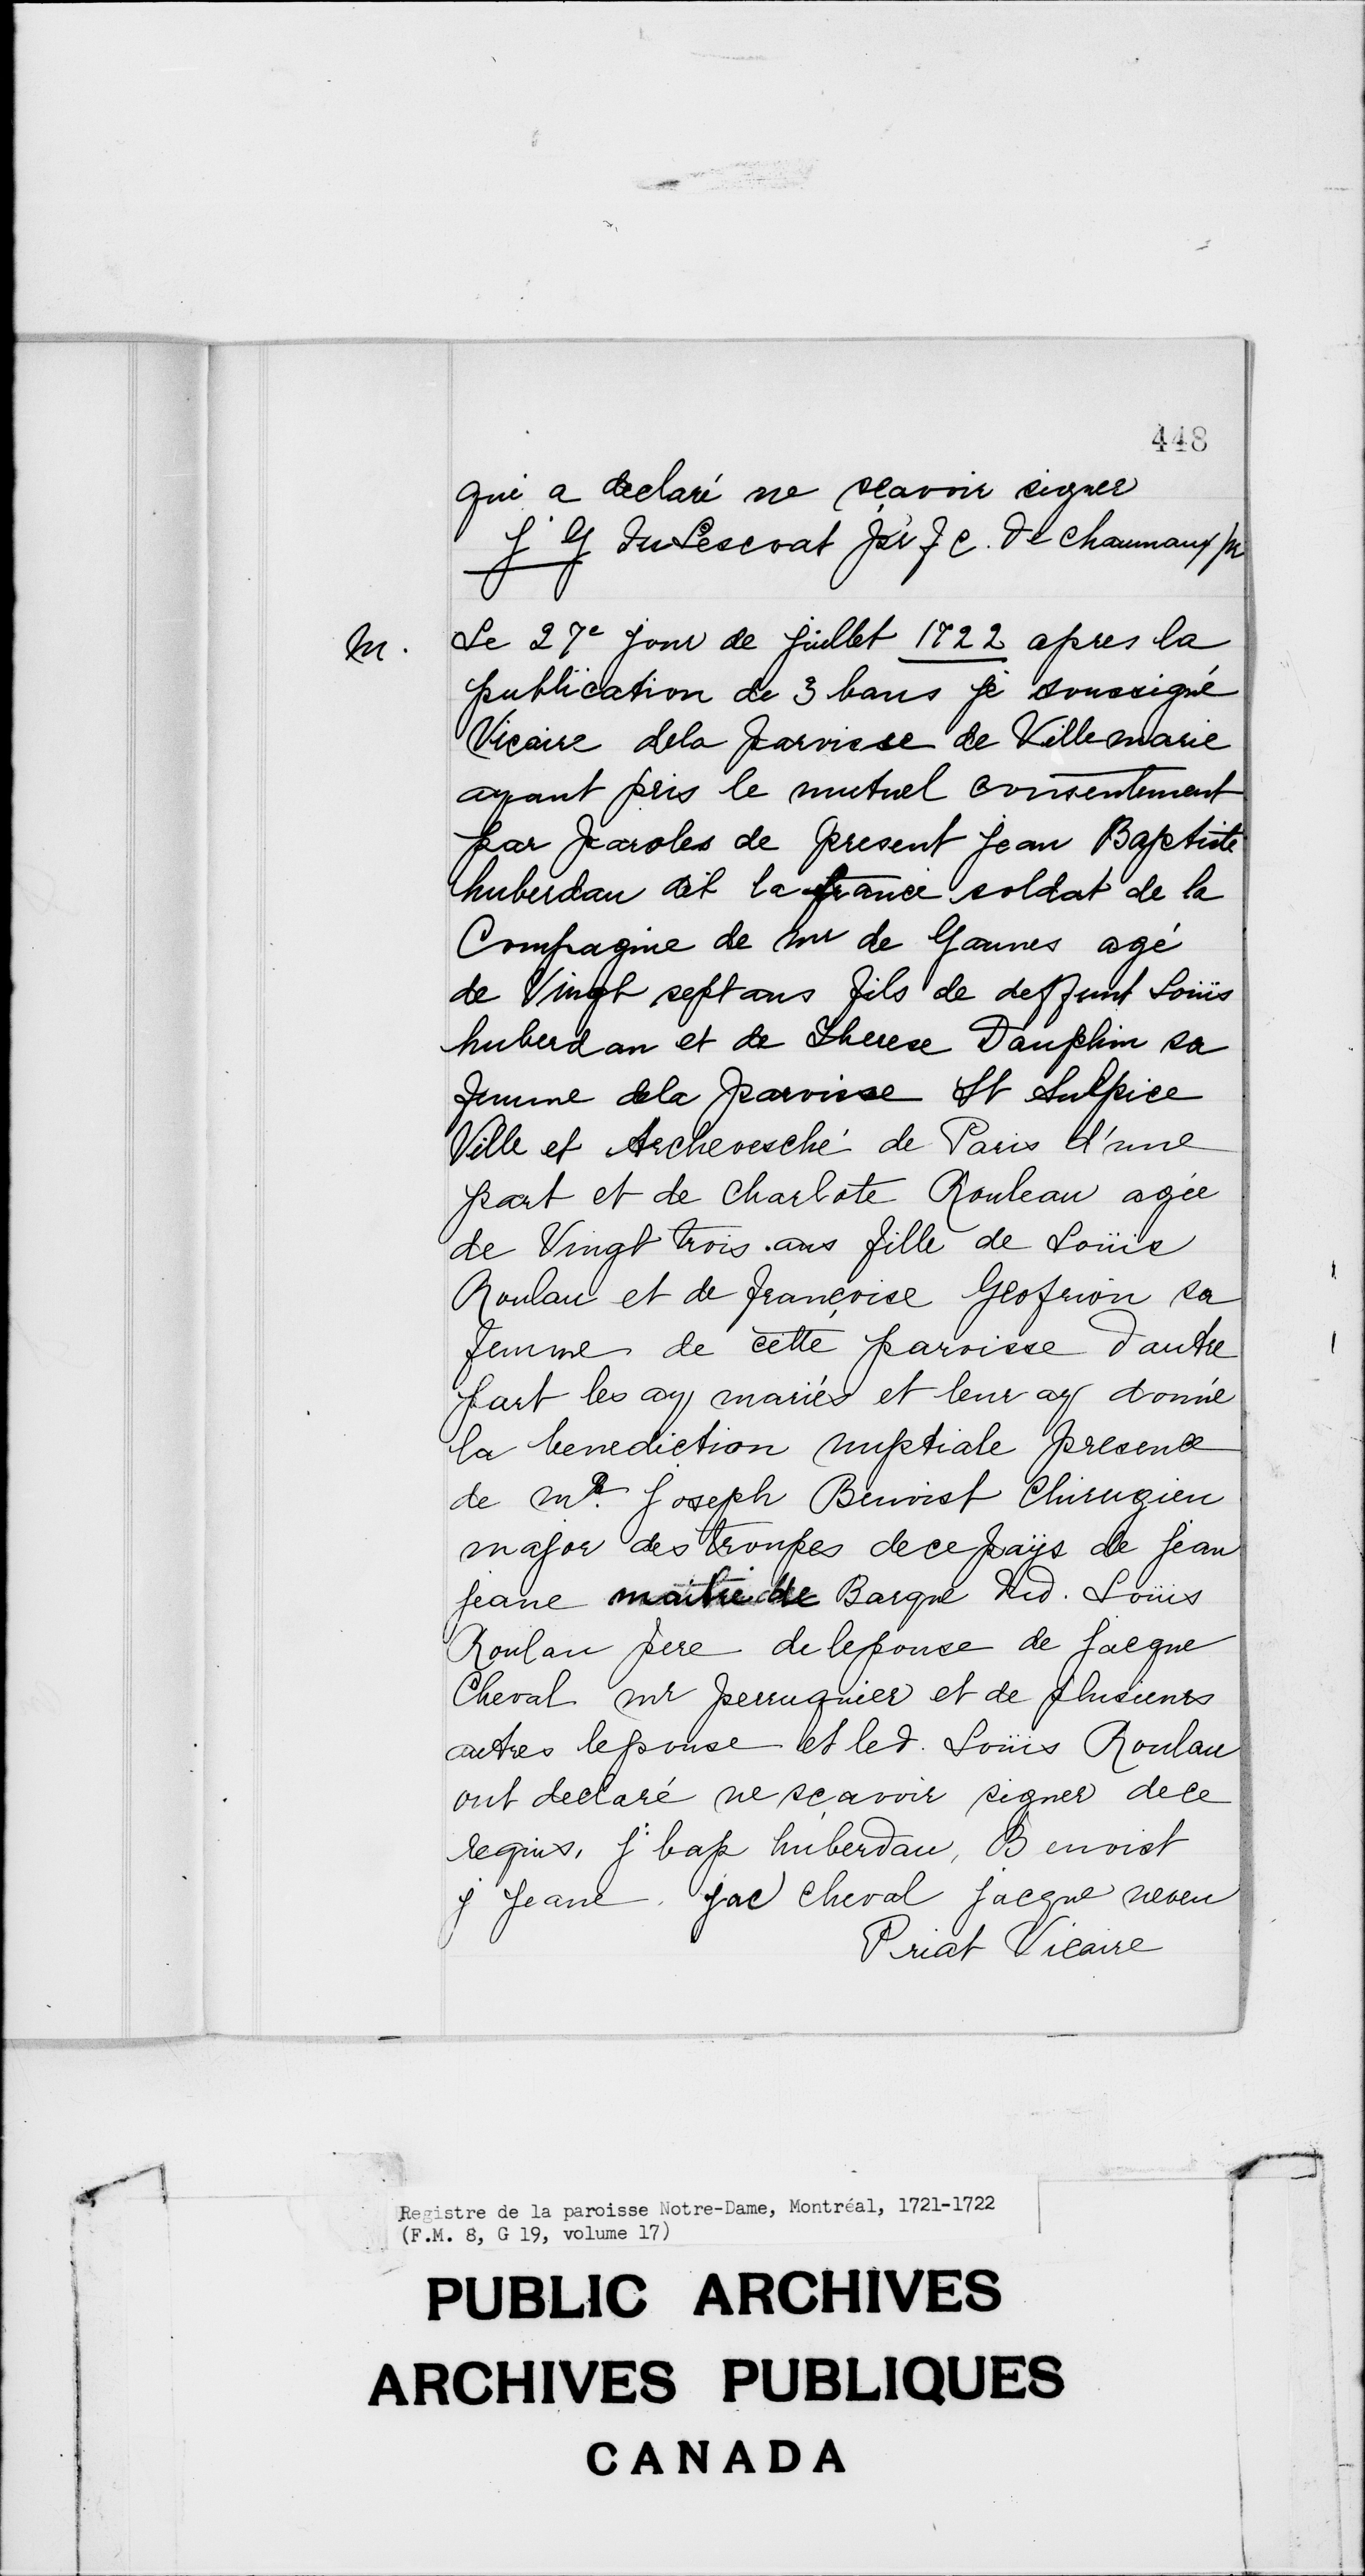 448
qui a declaré ne sçavoir signer
J G Du Lescoat ptr J C. De Chaumaux ptr
M. Le 27e jour de juillet 1722 apres la
publication de 3 bans je soussigné
Vicaire dela parroisse de Villemarie
ayant pris le mutuel consentement
par paroles de present jean Baptiste
huberdau dit la france soldat de la
Compagine de mr de Gannes agé
de Vingt sept ans fils de deffunt Loüis
huberdau et de Therese Dauphin sa
femme dela parroisse St Sulpice
Ville et Archevesché de Paris d'une
part et de charlote Rouleau agée
de Vingt trois ans fille de Loüis
Roulau et de françoise Geofrion sa
femme de cette paroisse d'autre
part les ay mariés et leur ay donné
la benediction nuptiale presence
de mR. Joseph Benoist Chirugien
major des troupes dece païs de jean
jeane maitre de Barque dud. Loüis
Roulau pere de lepouse de jacque
Cheval mr perruquier et de plusieurs
autres lepouse et led. Loüis Roulau
ont declaré ne sçavoir signer dece
requis, j bap huberdau, Benoist
j jeane. jac cheval jacque neveu
Priat Vicaire
Registre de la paroisse Notre-Dame, Montréal, 1721-1722
(F.M. 8, G 19, volume 17)
PUBLIC ARCHIVES
ARCHIVES PUBLIQUES
CANADA